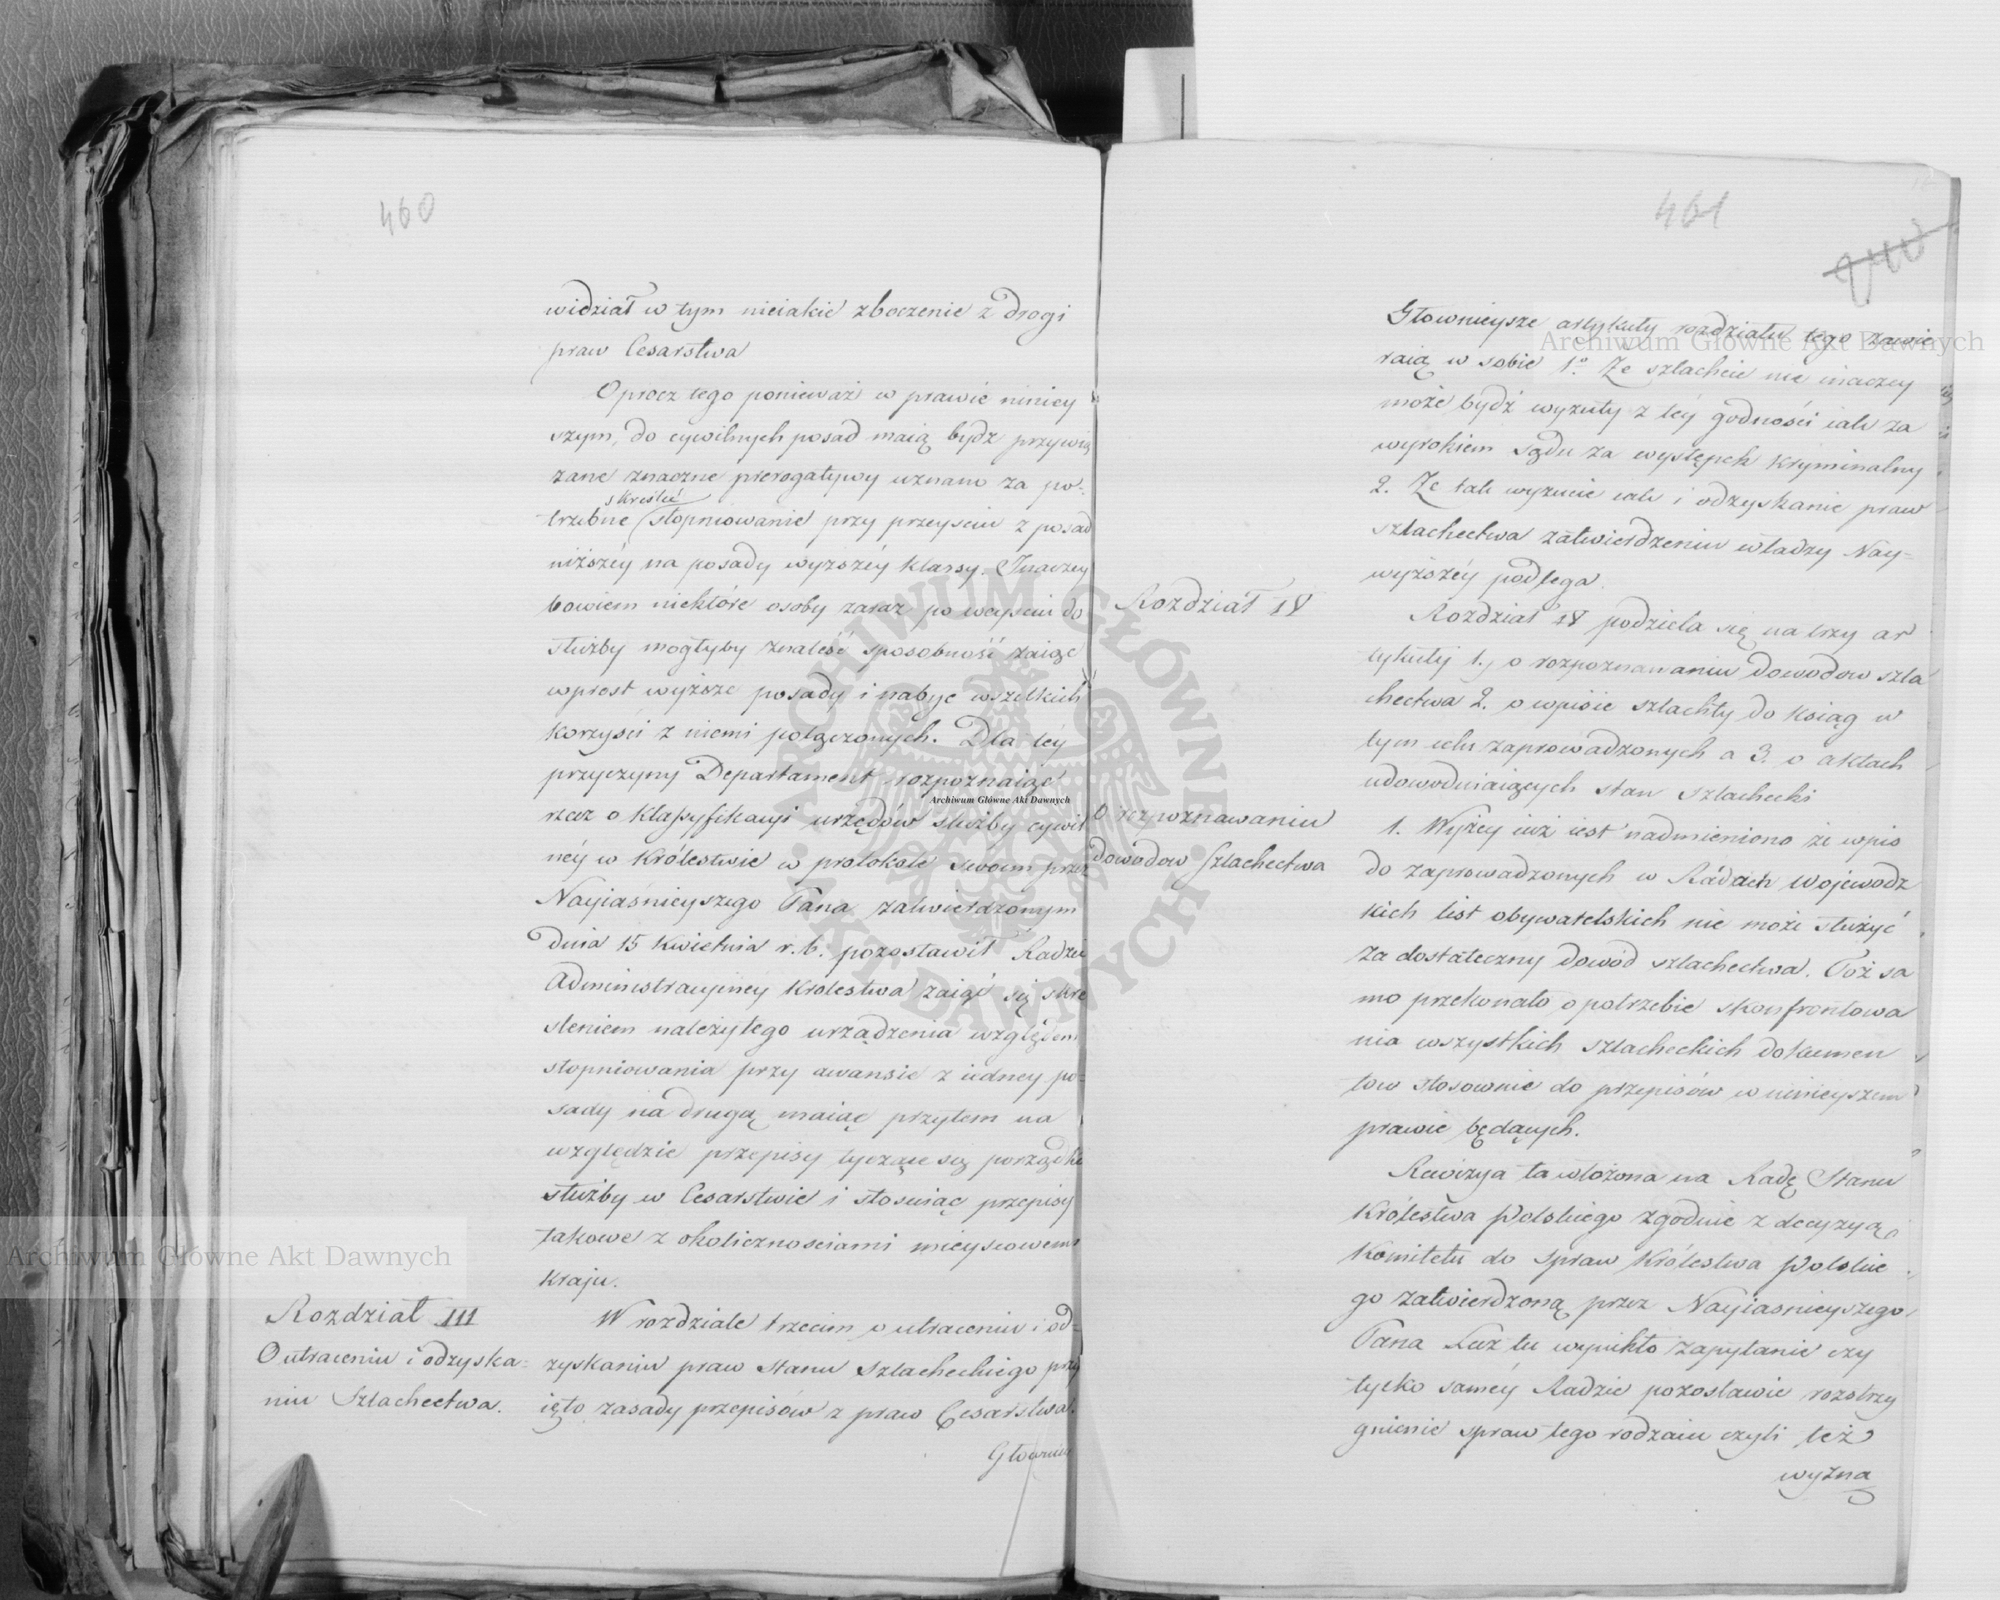 460
widział w tym nieiakie zboczenie z drogi
praw Cesarstwa
Oprocz tego ponieważ w prawie niniey
szym, do cywilnych posad maią bydz przywią
zane znaczne prerogatywy uznano za po-
skreślić
trzebne stopniowanie przy przeysciu z posad
niższéy na posady wyższéy klassy. Inaczey
bowiem niektóre osoby zaraz po weyściu do
służby mogłyby znaleść sposobność zaiąć
wprost wyższe posady i nabyć wszelkich
korzyści z niemi połączonych. Dla téy
przyczyny Departament rozpoznaiąc
rzecz o klassyfikacyi urzędów służby cywil
néy w Królestwie w protokole swoim przez
Nayiaśnieyszego Pana zatwierdzonym
dnia 15 Kwietnia r. b. pozostawił Radzie
Administracyiney Krolestwa zaiąć się skre
śleniem należytego urządzenia względem
stopniowania przy awansie z iedney po-
sady na drugą maiąc przytem na
względzie przepisy tyczące się porządku
służby w Cesarstwie i stosuiąc przepisy
takowe z okolicznościami mieyscowemi
kraju.
Rozdział III
O utraceniu i odzyska-
niu Szlachectwa.
W rozdziale trzecim o utraceniu i od-
zyskaniu praw stanu Szlacheckiego przy
ięto zasady przepisów z praw Cesarstwa.
Główniey
461
Głownieysze artykuły rozdziału tego zawie
raią w sobie 1o. Ze szlachcic nie inaczey
może bydź wyzuty z téy godności iak za
wyrokiem sądu za występek kryminalny
2. Ze tak wyzucie iak i odzyskanie praw
szlachectwa zatwierdzeniu władzy Nay-
wyższéy podlega.
Rozdział IV
Rozdział IV podziela się na trzy ar
tykuły 1., o rozpoznawaniu dowodow szla
chectwa 2. o wpisie szlachty do ksiąg w
tym celu zaprowadzonych a 3. o aktach
udowodniaiących stan szlachecki
O rozpoznawaniu
dowodow Szlachectwa
1. Wyżey iuż iest nadmieniono że wpis
do zaprowadzonych w Rádach Wojewodz
kich list obywatelskich nie może służyć
za dostateczny dowód szlachectwa. Toż sa
mo przekonało o potrzebie skonfrontowa
nia wszystkich szlacheckich dokumen
tow stosownie do przepisów w ninieyszem
prawie będących.
Rewizya ta włożona na Radę Stanu
Królestwa Polskiego zgodnie z decyzyą
Komitetu do spraw Królestwa Polskie
go zatwierdzoną przez Nayiasnieyszego
Pana Lecz tu wynikło zapytanie czy
tylko saméy Radzie pozostawić rozstrzy
gnienie spraw tego rodzaiu czyli też
wyzna
Archiwum Główne Akt Dawnych
Archiwum Główne Akt Dawnych
Archiwum Główne Akt Dawnych
ARCHIWUM GŁÓWNE AKT DAWNYCH